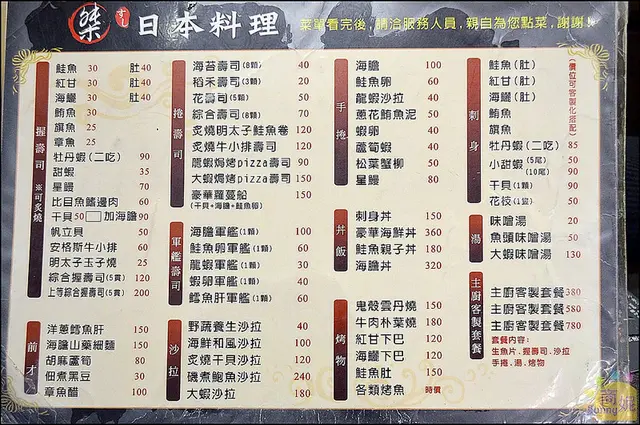 桀 すし 日本料理
菜單看完後,請洽服務人員,親自為您點菜,謝謝!
握壽司 ※可炙燒
鮭魚 30 肚 40
紅甘 30 肚 40
海鱺 30 肚 40
鮪魚 30
旗魚 25
章魚 25
牡丹蝦(二吃) 90
甜蝦 35
星鰻 70
比目魚鰭邊肉 60
干貝 50 加海膽 90
帆立貝 50
安格斯牛小排 60
明太子玉子燒 25
綜合握壽司(5貫) 120
上等綜合握壽司(5貫) 200
前才
洋蔥鱈魚肝 150
海膽山藥細麵 150
胡麻蘆筍 80
佃煮黑豆 30
章魚醋 100
捲壽司
海苔壽司(8顆) 40
稻禾壽司(3顆) 20
花壽司(5顆) 50
綜合壽司(8顆) 70
炙燒明太子鮭魚卷 120
炙燒牛小排壽司 120
龍蝦焗烤pizza壽司 90
大蝦焗烤pizza壽司 150
豪華蘿蔓船 150
(干貝+海膽+鮭魚卵)
軍艦壽司
海膽軍艦(1顆) 100
鮭魚卵軍艦(1顆) 60
龍蝦軍艦(1顆) 30
蝦卵軍艦(1顆) 40
鱈魚肝軍艦(1顆) 60
沙拉
野蔬養生沙拉 40
海鮮和風沙拉 100
炙燒干貝沙拉 120
磯煮鮑魚沙拉 240
大蝦沙拉 180
手捲
海膽 100
鮭魚卵 60
龍蝦沙拉 40
蔥花鮪魚泥 50
蝦卵 40
蘆筍蝦 40
松葉蟹柳 50
星鰻 80
丼飯
刺身丼 150
豪華海鮮丼 360
鮭魚親子丼 180
海膽丼 320
烤物
鬼殼雲丹燒 150
牛肉朴葉燒 180
紅甘下巴 120
海鱺下巴 120
鮭魚肚 150
各類烤魚 時價
刺身
(價位可客製化搭配)
鮭魚(肚)
紅甘(肚)
海鱺(肚)
鮪魚
旗魚
牡丹蝦(二吃) 85
小甜蝦(5尾) 50
(10尾) 90
干貝(1顆) 90
花枝(1盤) 50
湯
味噌湯 20
魚頭味噌湯 50
大蝦味噌湯 130
主廚客製套餐
主廚客製套餐 380
主廚客製套餐 580
主廚客製套餐 780
套餐內容:
生魚片、握壽司、沙拉
手捲、湯、烤物